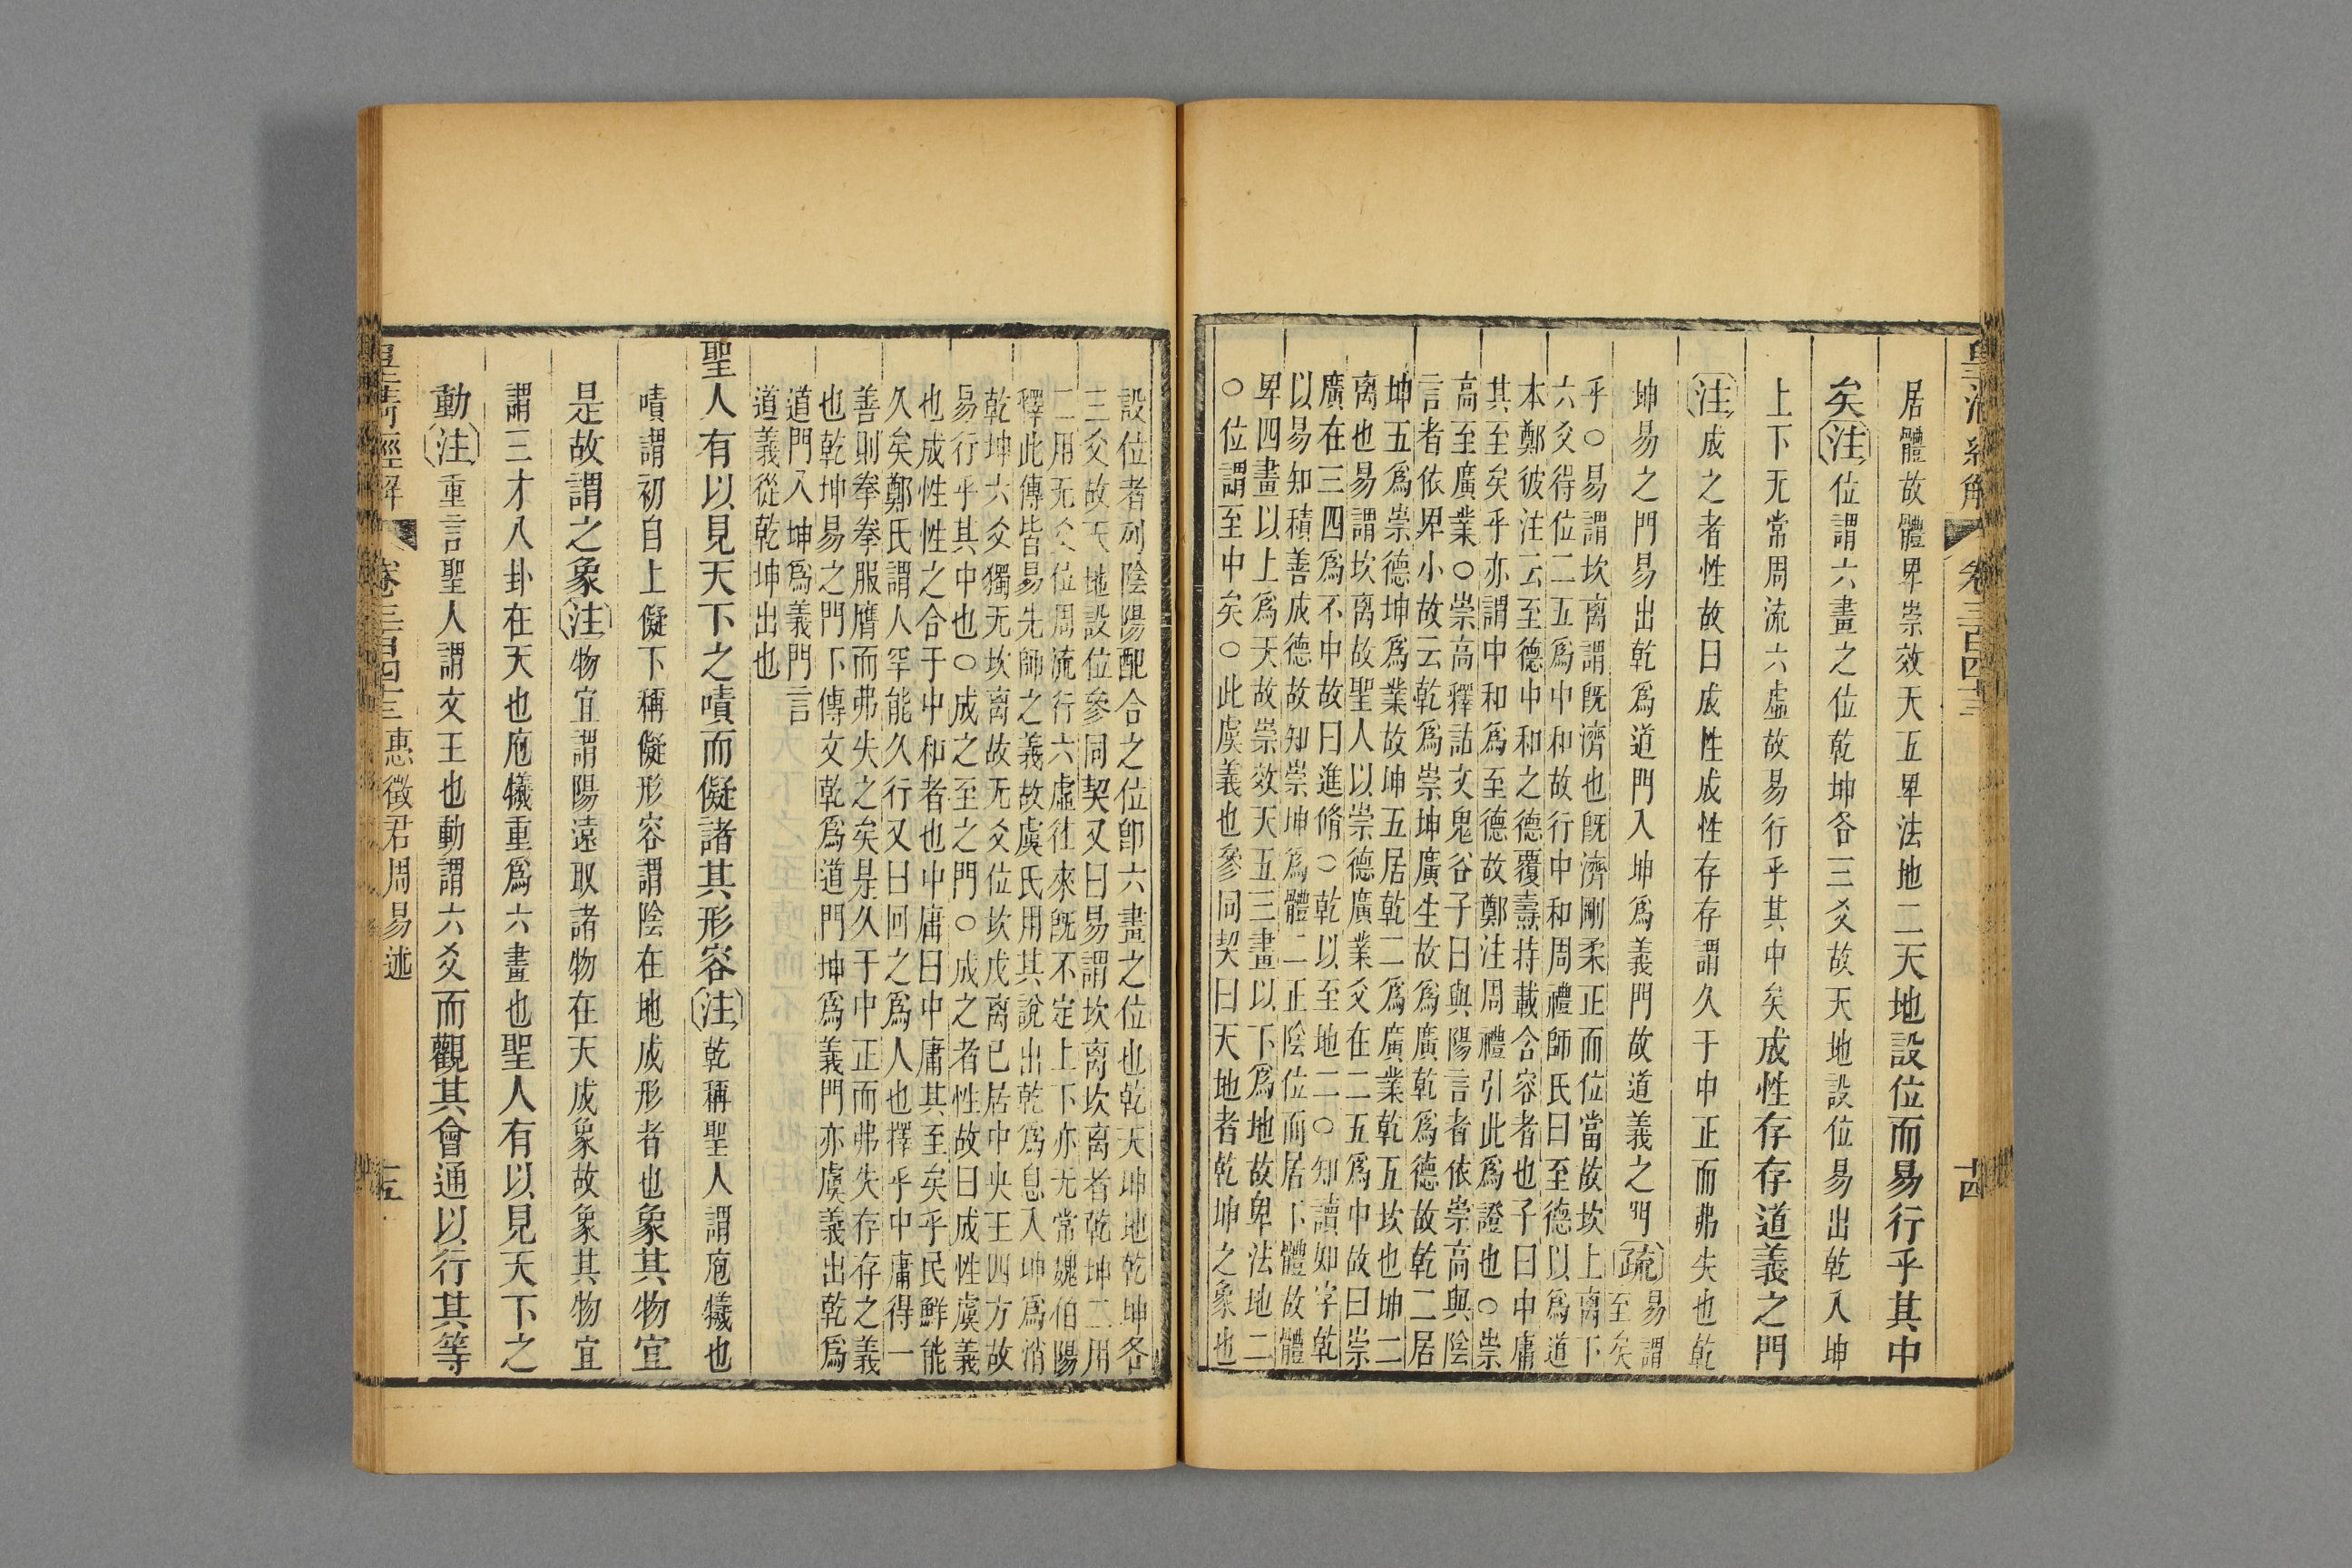 皇清經解 卷三百四十三 十四
居體故體卑崇效天五卑法地二天地設位而易行乎其中
矣注位謂六畫之位乾坤各三爻故天地設位易出乾入坤
上下无常周流六虛故易行乎其中矣成性存存道義之門
注成之者性故曰成性成性存存謂久于中正而弗失也乾
坤易之門易出乾爲道門入坤爲義門故道義之門疏易謂
至矣
乎○易謂坎离謂旣濟也旣濟剛柔正而位當故坎上离下
六爻得位二五爲中和故行中和周禮師氏曰至德以爲道
本鄭彼注云至德中和之德覆燾持載含容者也子曰中庸
其至矣乎亦謂中和爲至德故鄭注周禮引此爲證也○崇
高至廣業○崇高釋詁文鬼谷子曰與陽言者依崇高與陰
言者依卑小故云乾爲崇坤廣生故爲廣乾爲德故乾二居
坤五爲崇德坤爲業故坤五居乾二爲廣業乾五坎也坤二
离也易謂坎离故聖人以崇德廣業爻在二五爲中故曰崇
廣在三四爲不中故曰進脩○乾以至地二○知讀如字乾
以易知積善成德故知崇坤爲體二正陰位而居下體故體
卑四畫以上爲天故崇效天五三畫以下爲地故卑法地二
○位謂至中矣○此虞義也參同契曰天地者乾坤之象也
設位者列陰陽配合之位卽六畫之位也乾天坤地乾坤各
三爻故天地設位參同契又曰易謂坎离坎离者乾坤二用
二用无爻位周流行六虛往來旣不定上下亦无常魏伯陽
釋此傳皆易先師之義故虞氏用其說出乾爲息入坤爲消
乾坤六爻獨无坎离故无爻位坎戊离已居中央王四方故
易行乎其中也○成之至之門○成之者性故曰成性虞義
也成性性之合于中和者也中庸曰中庸其至矣乎民鮮能
久矣鄭氏謂人罕能久行又曰回之爲人也擇乎中庸得一
善則拳拳服膺而弗失之矣是久于中正而弗失存存之義
也乾坤易之門下傳文乾爲道門坤爲義門亦虞義出乾爲
道門入坤爲義門言
道義從乾坤出也
聖人有以見天下之嘖而儗諸其形容注乾稱聖人謂庖犧也
嘖謂初自上儗下稱儗形容謂陰在地成形者也象其物宜
是故謂之象注物宜謂陽遠取諸物在天成象故象其物宜
謂三才八卦在天也庖犧重爲六畫也聖人有以見天下之
動注重言聖人謂文王也動謂六爻而觀其會通以行其等
皇淸經解 卷三百四十三 惠徵君周易述 十五